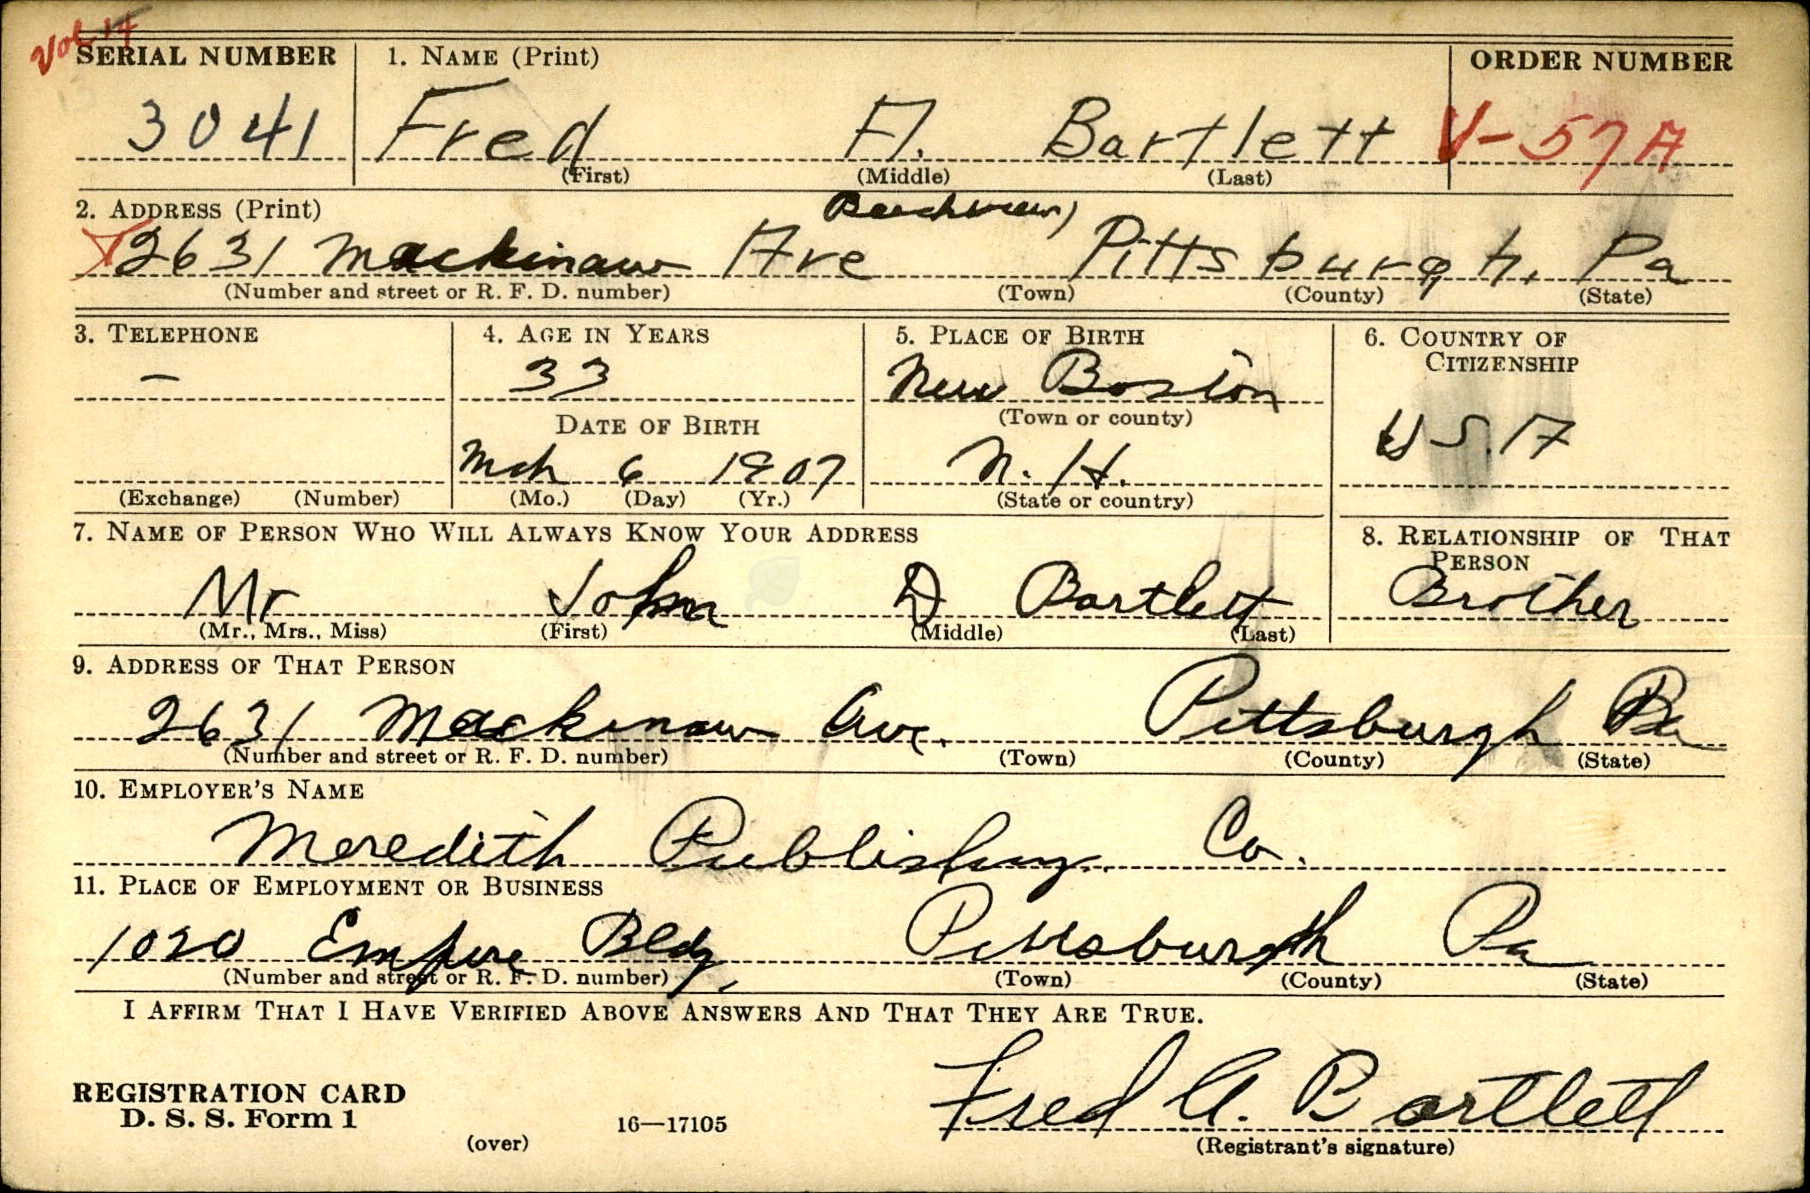 Vol 14
SERIAL NUMBER 1. NAME (Print) ORDER NUMBER
3041 Fred A. Bartlett V-57A
(First) (Middle) (Last)
2. ADDRESS (Print) Beechview)
2631 Mackinaw Ave Pittsburgh, Pa
(Number and street or R. F. D. number) (Town) (County) (State)
3. TELEPHONE 4. AGE IN YEARS 5. PLACE OF BIRTH 6. COUNTRY OF CITIZENSHIP
– 33 New Boston
DATE OF BIRTH (Town or county) U S. A
Mch 6 1907 N. H.
(Exchange) (Number) (Mo.) (Day) (Yr.) (State or country)
7. NAME OF PERSON WHO WILL ALWAYS KNOW YOUR ADDRESS 8. RELATIONSHIP OF THAT PERSON
Mr John D Bartlett Brother
(Mr., Mrs., Miss) (First) (Middle) (Last)
9. ADDRESS OF THAT PERSON
2631 Mackinaw Ave. Pittsburgh Pa
(Number and street or R. F. D. number) (Town) (County) (State)
10. EMPLOYER'S NAME
Meredith Publishing Co.
11. PLACE OF EMPLOYMENT OR BUSINESS
1020 Empire Bldg, Pittsburgh Pa
(Number and street or R. F. D. number) (Town) (County) (State)
I AFFIRM THAT I HAVE VERIFIED ABOVE ANSWERS AND THAT THEY ARE TRUE.
Fred A. Bartlett
REGISTRATION CARD
D. S. S. Form 1 16—17105
(over) (Registrant's signature)